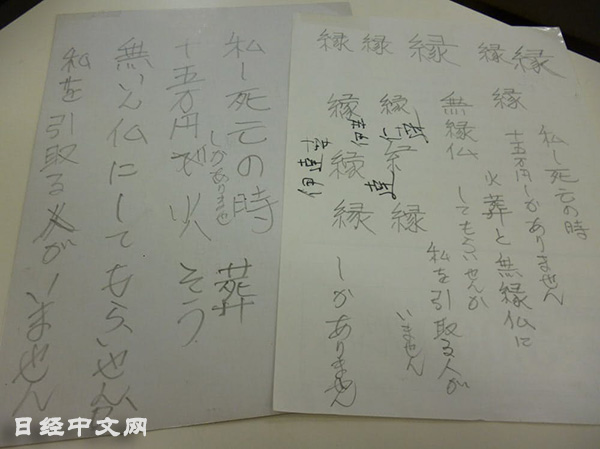 私し死亡の時 葬
十五万円で火そう
しかありませ
無えん仏にしてもらいせんか
私を引取る人がいません
縁 縁 縁 縁 縁
縁
私し死亡の時
十五万円しかありません
火葬と無縁仏に
してもらいせんか
私を引取る人が
いません
縁 縁
縁 縁 縁
しかありません
日经中文网